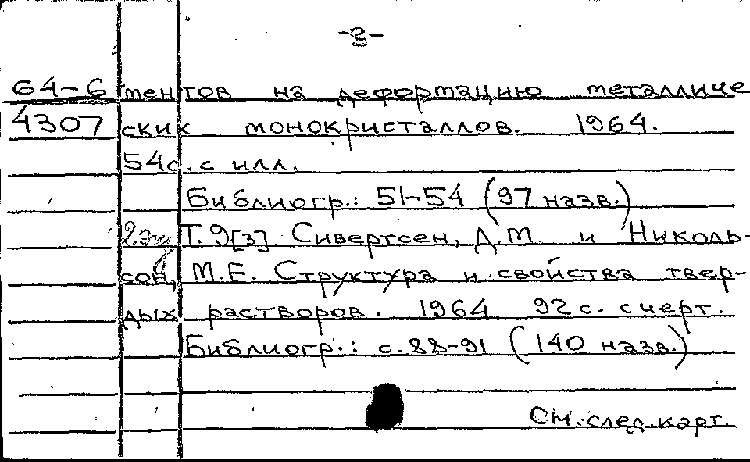 -3-
64-6 ментов на деформацию металличе
4307 ских монокристаллов. 1964.
54с. с илл.
Библиогр.: 51-54 (97 назв.)
2 эк Т. 9[3] Сивертсен, Д.М и Николь-
сон, М.Е. Структура и свойства твер-
дых растворов. 1964 92с. с черт.
Библиогр.: с.88-91 (140 назв.)
См. след. карт.